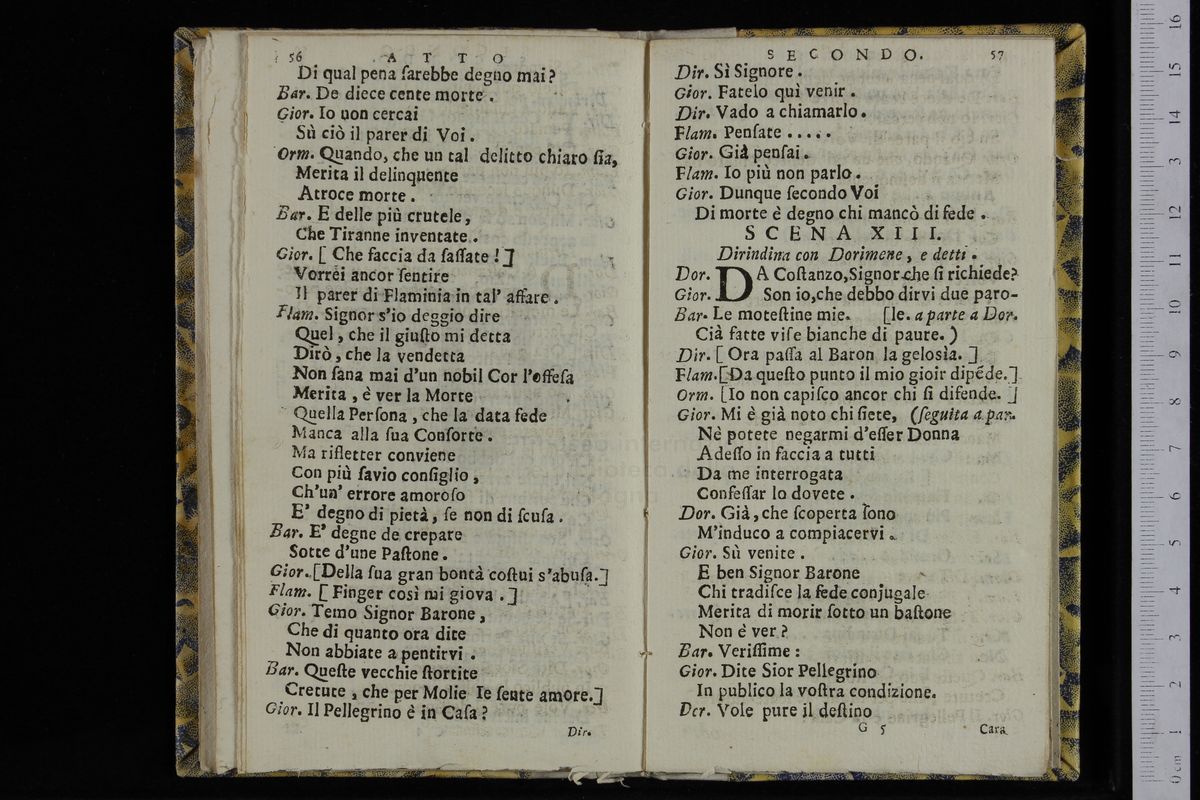 56 A T T O
Di qual pena ſarebbe degno mai?
Bar. De diece cente morte.
Gior. Io non cercai
Sù ciò il parer di Voi.
Orm. Quando, che un tal delitto chiaro ſia,
Merita il delinquente
Atroce morte.
Bar. E delle più crutele,
Che Tiranne inventate.
Gior. [ Che faccia da ſaſſate ! ]
Vorrei ancor ſentire
Il parer di Flaminia in tal' affare.
Flam. Signor s'io deggio dire
Quel, che il giuſto mi detta
Dirò, che la vendetta
Non ſana mai d'un nobil Cor l'offeſa
Merita, è ver la Morte
Quella Perſona, che la data fede
Manca alla ſua Conſorte.
Ma rifletter conviene
Con più ſavio conſiglio,
Ch'un' errore amoroſo
E' degno di pietà, ſe non di ſcuſa.
Bar. E' degne de crepare
Sotte d'une Paſtone.
Gior. [Della ſua gran bontà coſtui s'abuſa.]
Flam. [ Finger così mi giova. ]
Gior. Temo Signor Barone,
Che di quanto ora dite
Non abbiate a pentirvi.
Bar. Queſte vecchie ſtortite
Cretute, che per Molie Ie ſente amore.]
Gior. Il Pellegrino è in Caſa?
Dir.
SECONDO. 57
Dir. Sì Signore.
Gior. Fatelo quì venir.
Dir. Vado a chiamarlo.
Flam. Penſate .....
Gior. Già penſai.
Flam. Io più non parlo.
Gior. Dunque ſecondo Voi
Di morte è degno chi mancò di fede.
SCENA XIII.
Dirindina con Dorimene, e detti.
Dor. DA Coſtanzo, Signor che ſi richiede?
Gior. Son io, che debbo dirvi due paro-
Bar. Le moteſtine mie. [le. a parte a Dor.
Cià fatte viſe bianche di paure. )
Dir. [ Ora paſſa al Baron la gelosìa. ]
Flam. [Da queſto punto il mio gioir dipēde.]
Orm. [Io non capiſco ancor chi ſi difende. ]
Gior. Mi è già noto chi ſiete, (ſeguita a par.
Nè potete negarmi d'eſſer Donna
Adeſſo in faccia a tutti
Da me interrogata
Confeſſar lo dovete.
Dor. Già, che ſcoperta ſono
M'induco a compiacervi.
Gior. Sù venite.
E ben Signor Barone
Chi tradiſce la fede conjugale
Merita di morir ſotto un baſtone
Non è ver?
Bar. Veriſſime:
Gior. Dite Sior Pellegrino
In publico la voſtra condizione.
Dor. Vole pure il deſtino
G 5 Cara
16
15
14
13
12
11
10
9
8
7
6
5
4
3
2
1
0 cm